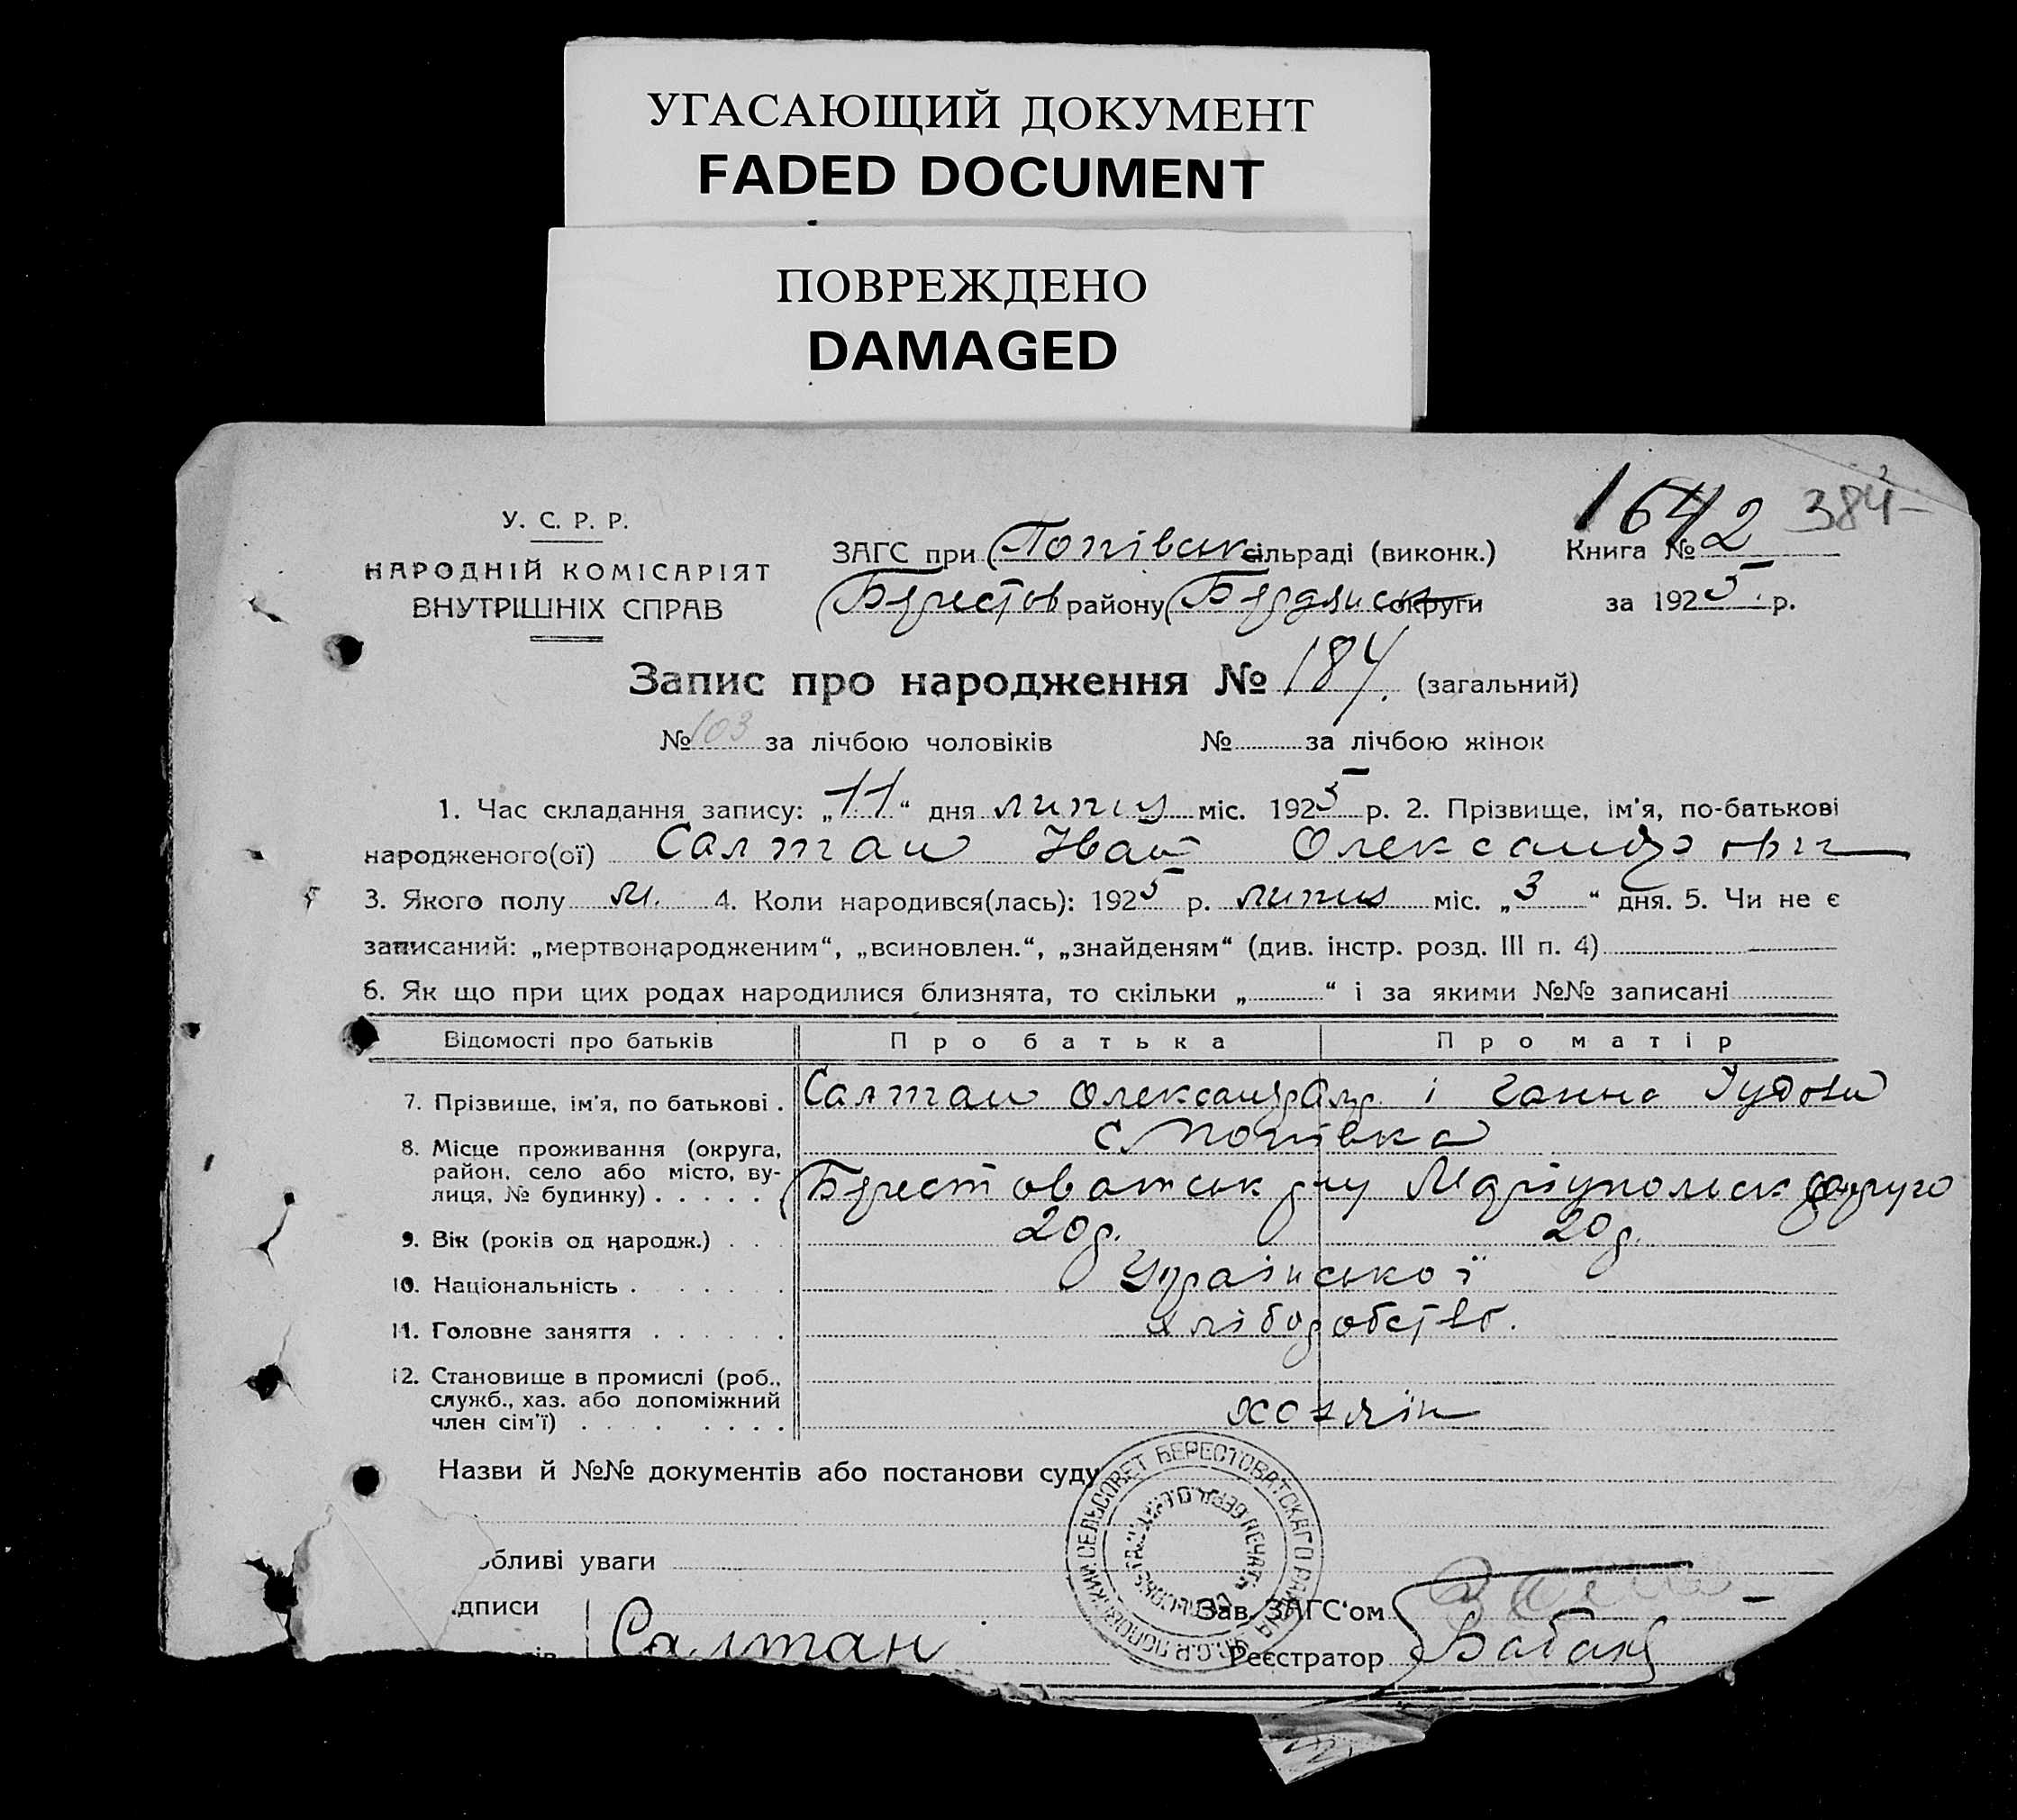 УГАСАЮЩИЙ ДОКУМЕНТ
FADED DOCUMENT
ПОВРЕЖДЕНО
DAMAGED
1642 384
У. С. Р. Р.
НАРОДНІЙ КОМІСАРІЯТ
ВНУТРІШНІХ СПРАВ
ЗАГС при Попівськ сільраді (виконк.) Книга № 2
Берестов району Бердянськ округи за 1925 р.
Запис про народження № 184. (загальний)
№ 103 за лічбою чоловіків № за лічбою жінок
1. Час складання запису: „11“ дня липця міс. 1925 р. 2. Прізвище, ім'я, по-батькові
народженого(ої) Салтан Іван Олександрович
3. Якого полу м. 4. Коли народився(лась): 1925 р. липця міс. „3“ дня. 5. Чи не є
записаний: „мертвонародженим“, „всиновлен.“, „знайденям“ (див. інстр. розд. III п. 4)
6. Як що при цих родах народилися близнята, то скільки „ “ і за якими №№ записані
Відомості про батьків Про батька Про матір
7. Прізвище, ім'я, по батькові . Салтан Олександр і Ганна
8. Місце проживання (округа, с Попівка
район, село або місто, ву-
лиця, № будинку) . . . . . Берестоватськ р-ну Маріупольськ округо
9. Вік (років од народж.) . . . 20р. 20р.
10. Національність . . . . . . . Української
11. Головне заняття . . . . . . хліборобство.
12. Становище в промислі (роб.,
служб., хаз. або допоміжний
член сім'ї) . . . . . . . . хозяїн
Назви й №№ документів або постанови суду
обливі уваги
ідписи Зав. ЗАГС'ом
Салтан Реєстратор Бабак
ПОПОВСКИЙ СЕЛЬСОВЕТ БЕРЕСТОВАТСКАГО РАЙОНА